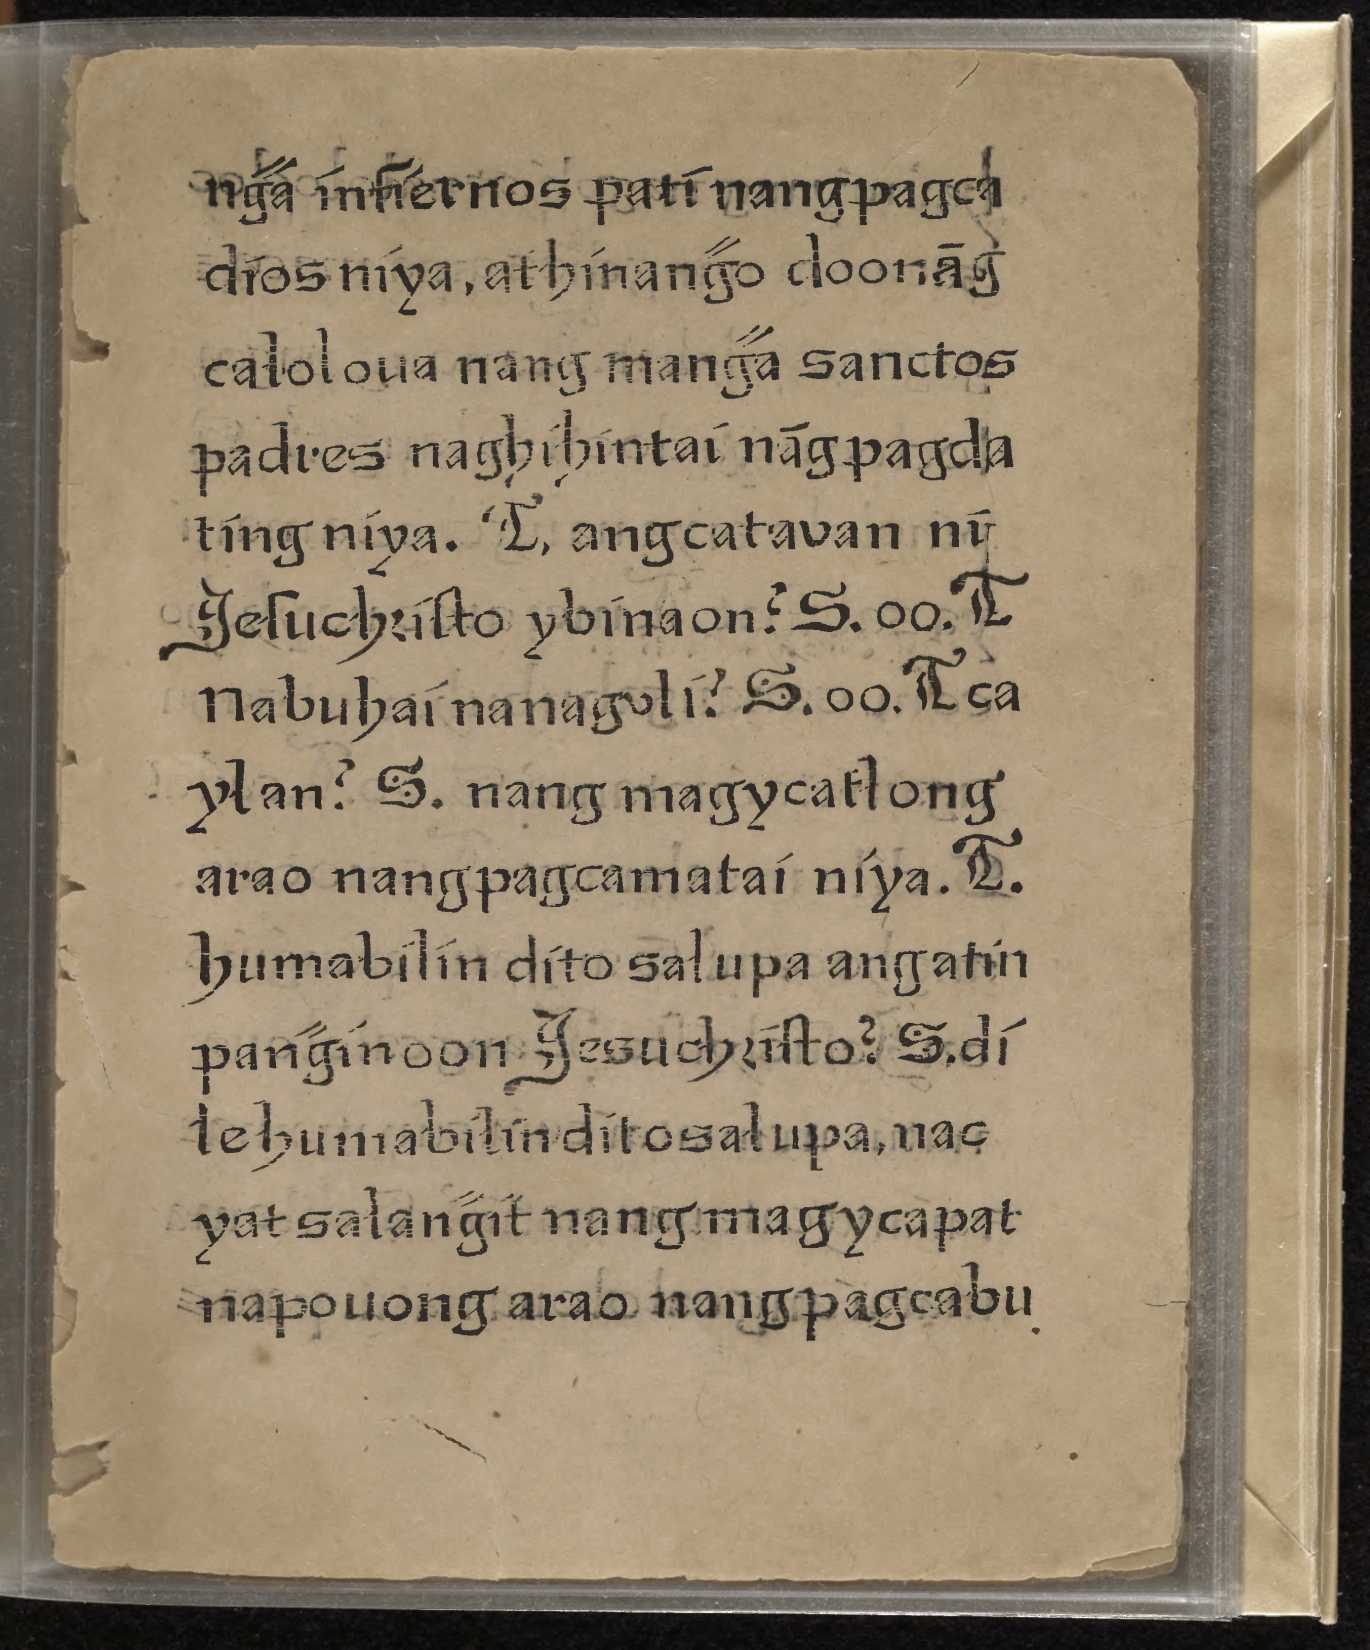 ng̃a infiernos pati nang pagca
dios niya, at hinang̃o doonāg
caloloua nang mang̃a sanctos
padres naghihintai nāg pagda
ting niya. T, ang catavan ni
Jeſuchriſto ybinaon? S. oo. T
Nabuhai nanagvli? S. oo. T ca
ylan? S. nang magycatlong
arao nang pagcamatai niya. T.
humabilin dito salupa ang atin
pang̃inoon Jesuchriſto? S. di
le humabilin dito salupa, nac
yat salang̃it nang magycapat
napouong arao nang pagcabu